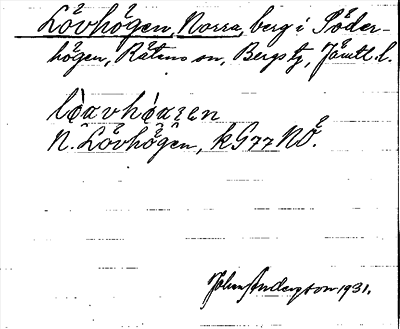 Lövhögen, Norra, berg i Söder-
högen, Rätans sn, Bergs tg, Jämtl. l.
N. Lövhögen, kG77NÖ.
John Anderson 1931.